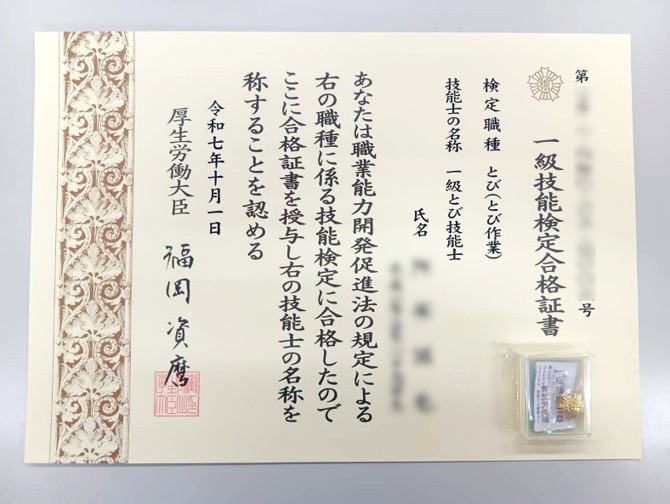 第 号
一級技能検定合格証書
検定職種 とび(とび作業)
技能士の名称 一級とび技能士
氏名
あなたは職業能力開発促進法の規定による
右の職種に係る技能検定に合格したので
ここに合格証書を授与し右の技能士の名称を
称することを認める
令和七年十月一日
厚生労働大臣 福岡資麿